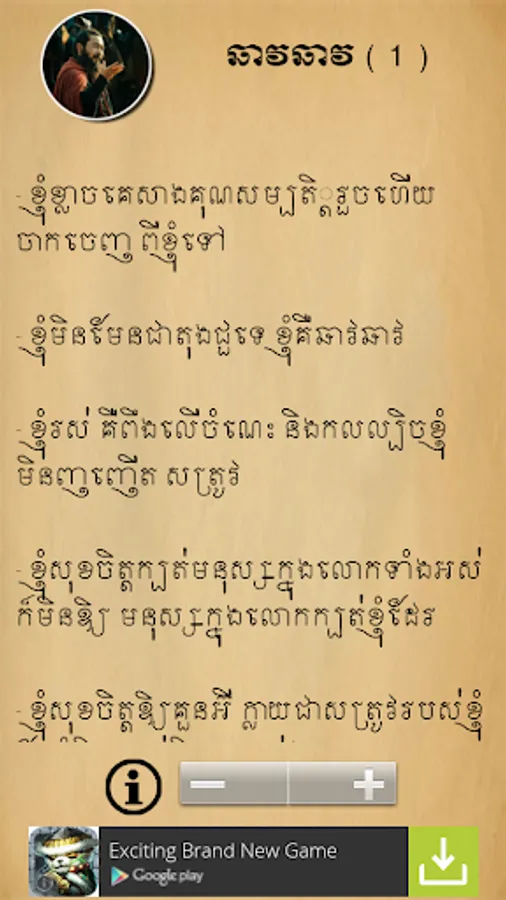 ឆាវឆាវ ( 1 )
- ខ្ញុំខ្លាចគេសាងគុណសម្បតិ្តរួចហើយ
ចាកចេញ ពីខ្ញុំទៅ
- ខ្ញុំមិនមែនជាតុងជួទេ ខ្ញុំគឺឆាវឆាវ
- ខ្ញុំរស់ គឺពឹងលើចំណេះ និងកលល្បិចខ្ញុំ
មិនញញើត សត្រូវ
- ខ្ញុំសុខចិត្តក្បត់មនុស្សក្នុងលោកទាំងអស់
ក៏មិនឱ្យ មនុស្សក្នុងលោកក្បត់ខ្ញុំដែរ
- ខ្ញុំសុខចិត្តឱ្យគួនអ៊ី ក្លាយជាសត្រូវរបស់ខ្ញុំ
Exciting Brand New Game
Google play